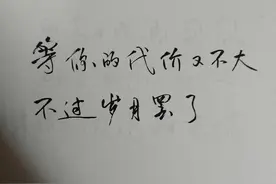 等你的代价又不大
不过岁月累了